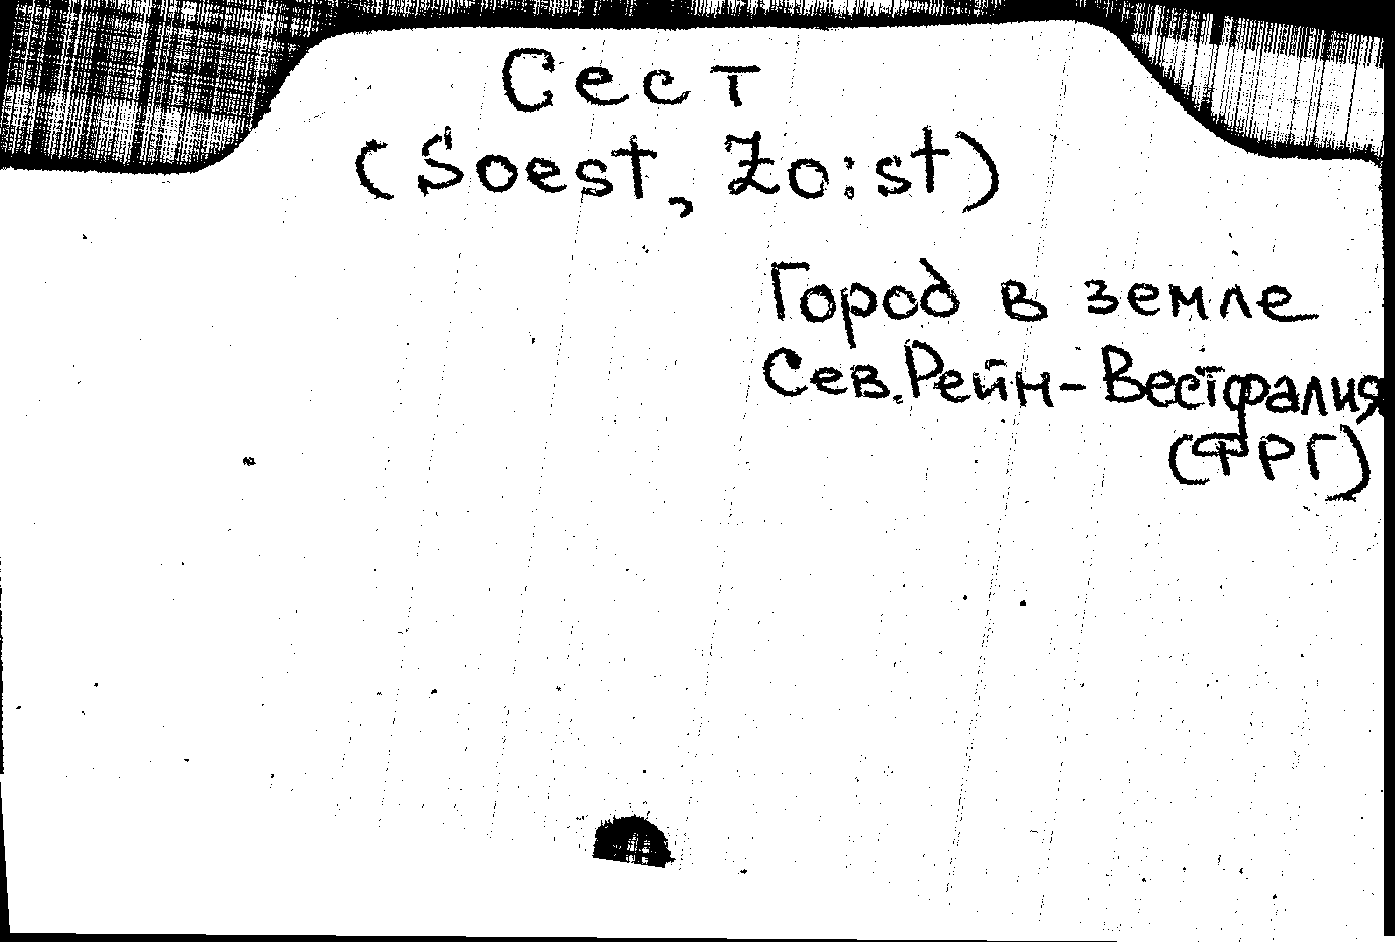 Сест
(Soest, Zo:st)
Город в земле
Сев.Рейн-Вестфалия
(ФРГ)